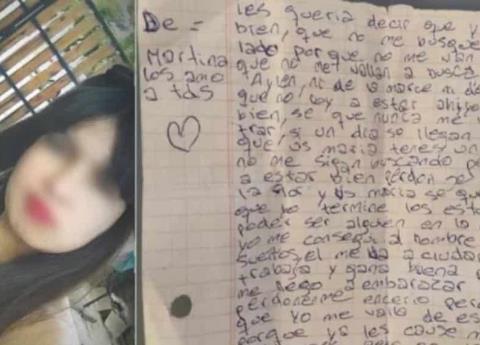 De =
Martina
los amo
a tds
les queria decir que y
bien, que no me busque
lado porque no me van
que no me vallan a busca
Aylen, ni de la marce ni d
que no voy a estar ahi
bien, se que nunca me
trar, si un dia se llegan
que vos maria tenes un
no me sigan buscando pe
a estar bien perdon
la flor y vos maria se que
que yo termine los est
poder ser alguien en la
yo me consegui al hombre
sueños, el me va a ciudar
trabaja y gana buena p
me llego a embarazar
perdonenme encerio per
que yo me vallo de es
porque ya les cause m